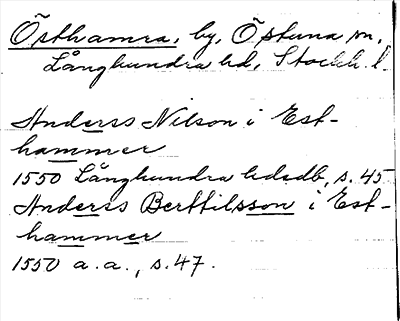 Östhamra, by, Östuna sn,
Långhundra hd, Stockh. l.
Anderss Nilson i Est-
hammer
1550 Långhundra hdsdb, s. 45
Anderss Berttilsson i Est-
hammer
1550 a.a., s. 47.